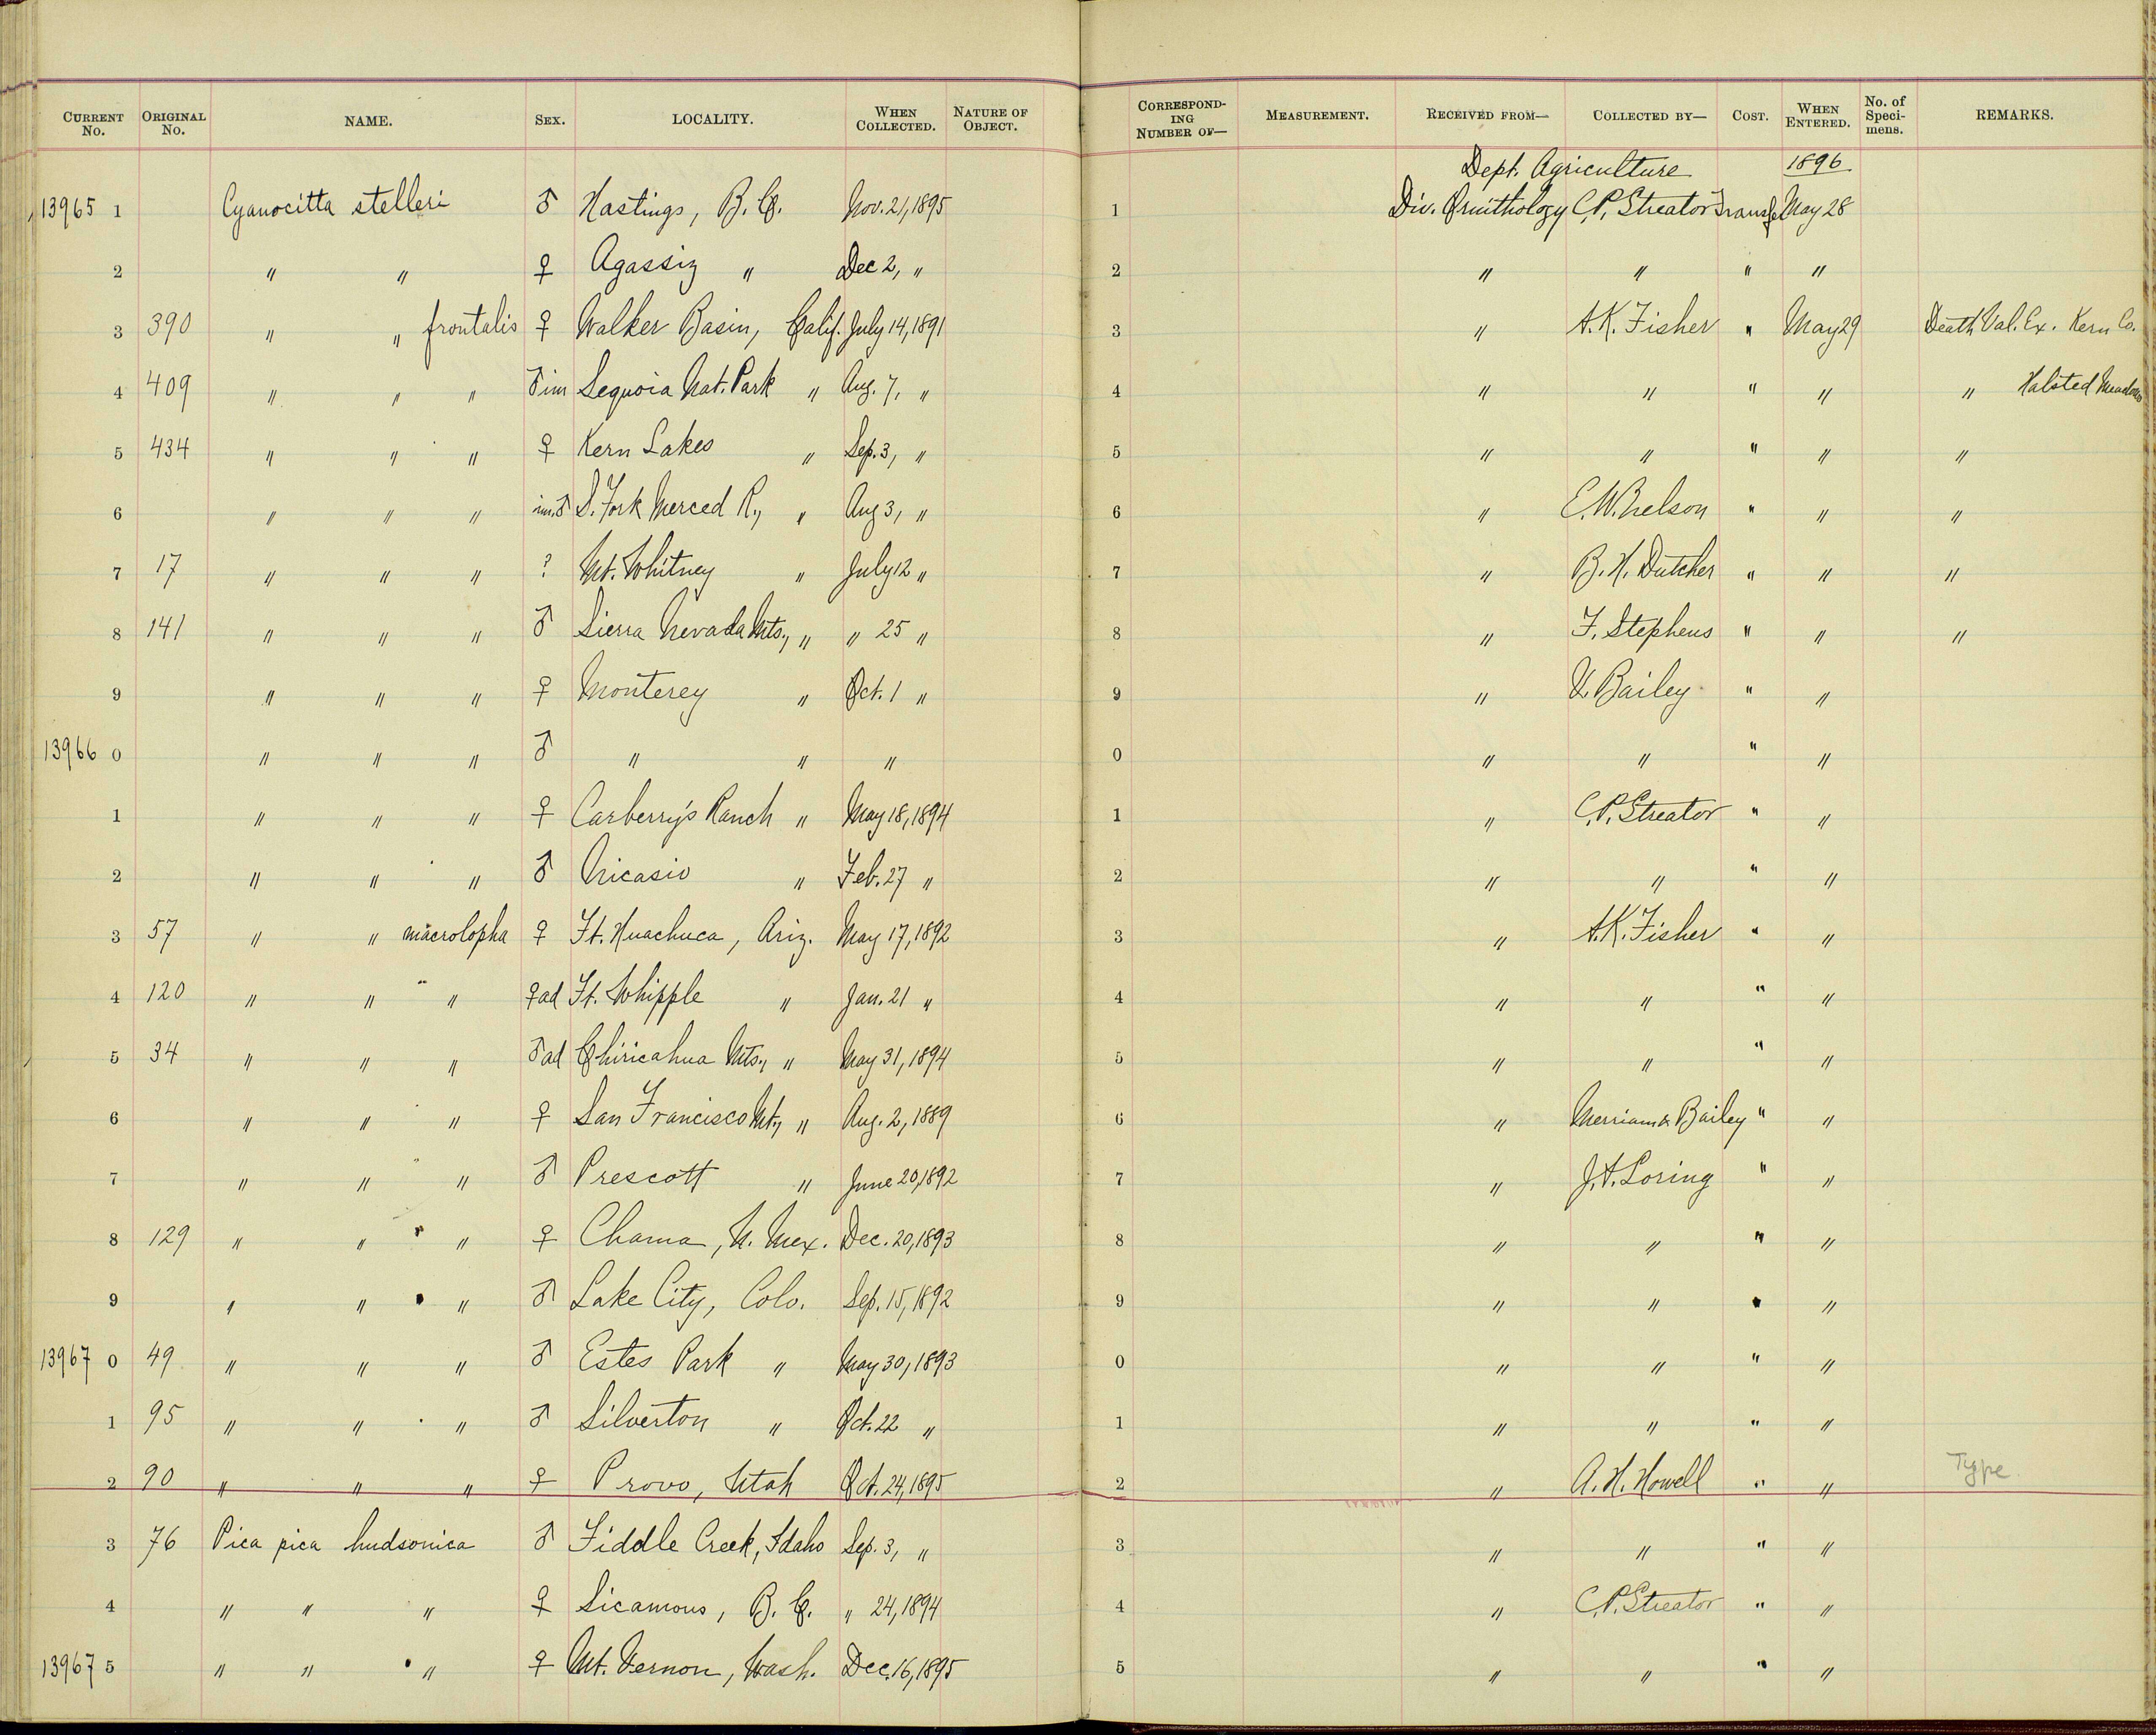 CURRENT No. ORIGINAL No. NAME. SEX. LOCALITY. WHEN COLLECTED. NATURE OF OBJECT. CORRESPONDING NUMBER OF— MEASUREMENT. RECEIVED FROM— COLLECTED BY— COST. WHEN ENTERED. No. of Specimens. REMARKS.
Dept. Agriculture 1896
13965 1 Cyanocitta stelleri ♂ Hastings, B.C. Nov. 21, 1895 1 Div. Ornithology C.P. Streator Transfer May 28
2 " " ♀ Agassiz " Dec 2, " 2 " " " "
3 390 " " frontalis ♀ Walker Basin, Calif. July 14, 1891 3 " A.K. Fisher " May 29 Death Val. Ex. Kern Co.
4 409 " " " ♂ im Sequoia Nat. Park " Aug. 7, " 4 " " " " " Halsted Meadows
5 434 " " " ♀ Kern Lakes " Sep. 3, " 5 " " " " "
6 " " " im. ♂ S. Fork Merced R., " Aug 3, " 6 " E.W. Nelson " " "
7 17 " " " ? Mt. Whitney " July 12 " 7 " B.H. Dutcher " " "
8 141 " " " ♂ Sierra Nevada Mts., " " 25 " 8 " F. Stephens " " "
9 " " " ♀ Monterey " Oct. 1 " 9 " V. Bailey " "
13966 0 " " " ♂ " " " 0 " " " "
1 " " " ♀ Carberry's Ranch " May 18, 1894 1 " C.P. Streator " "
2 " " " ♂ Nicasio " Feb. 27 " 2 " " " "
3 57 " " macrolopha ♀ Ft. Huachuca, Ariz. May 17, 1892 3 " A.K. Fisher " "
4 120 " " " ♀ ad Ft. Whipple " Jan. 21 " 4 " " " "
5 34 " " " ♂ ad Chiricahua Mts., " May 31, 1894 5 " " " "
6 " " " ♀ San Francisco Mt., " Aug. 2, 1889 6 " Merriam & Bailey " "
7 " " " ♂ Prescott " June 20, 1892 7 " J.A. Loring " "
8 129 " " " ♀ Chama, N. Mex. Dec. 20, 1893 8 " " " "
9 " " " ♂ Lake City, Colo. Sep. 15, 1892 9 " " " "
13967 0 49 " " " ♂ Estes Park " May 30, 1893 0 " " " "
1 95 " " " ♂ Silverton " Oct. 22 " 1 " " " "
2 90 " " " ♀ Provo, Utah Oct. 24, 1895 2 " A.H. Howell " " Type
3 76 Pica pica hudsonica ♂ Fiddle Creek, Idaho Sep. 3, " 3 " " " "
4 " " " ♀ Sicamous, B.C. " 24, 1894 4 " C.P. Streator " "
13967 5 " " " ♀ Mt. Vernon, Wash. Dec. 16, 1895 5 " " " "